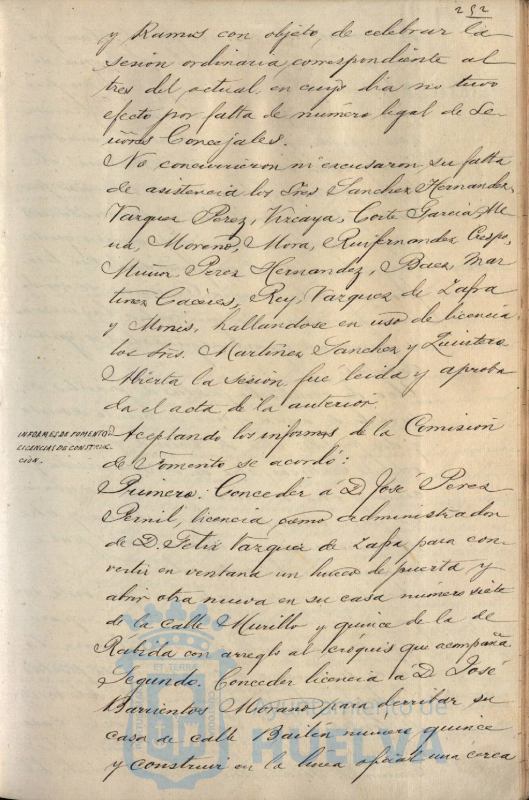 252
y Ramos con objeto, de celebrar la
sesion ordinaria, correspondiente al
tres del actual, en cuyo dia no tuvo
efecto por falta de número legal de Se-
ñores Concejales.
No concurrieron ni excusaron su falta
de asistencia los Sres Sanchez Hernandez,
Vazquez Perez, Vizcaya, Corte Garcia
Moreno, Mora, Ruifernandez Crespo,
Muñoz Perez Hernandez, Baez, Mar-
tinez Caceres, Rey, Vazquez de Zafra
y Monis, hallandose en uso de licencia
los Sres. Martinez Sanchez y Quintero
Abierta la sesion fué leida y aproba
da el acta de la anterior.
INFORMES DE FOMENTO
LICENCIAS DE CONSTRUC
CION.
Aceptando los informes de la Comision
de Fomento se acordó:
Primero: Conceder á D. José Perez
Pernil, licencia, como administrador
de D. Felix Vazquez de Zafra para con-
vertir en ventana un hueco de puerta y
abrir otra nueva en su casa número siete
de la calle Murillo y quince de la de
Rábida con arreglo al cróquis que acompaña.
Segundo. Conceder licencia á D. José
Barrientos Morano para derribar su
casa de calle Bailén numero quince
y construir en la linea oficial una cerca
Ayuntamiento de
HUELVA